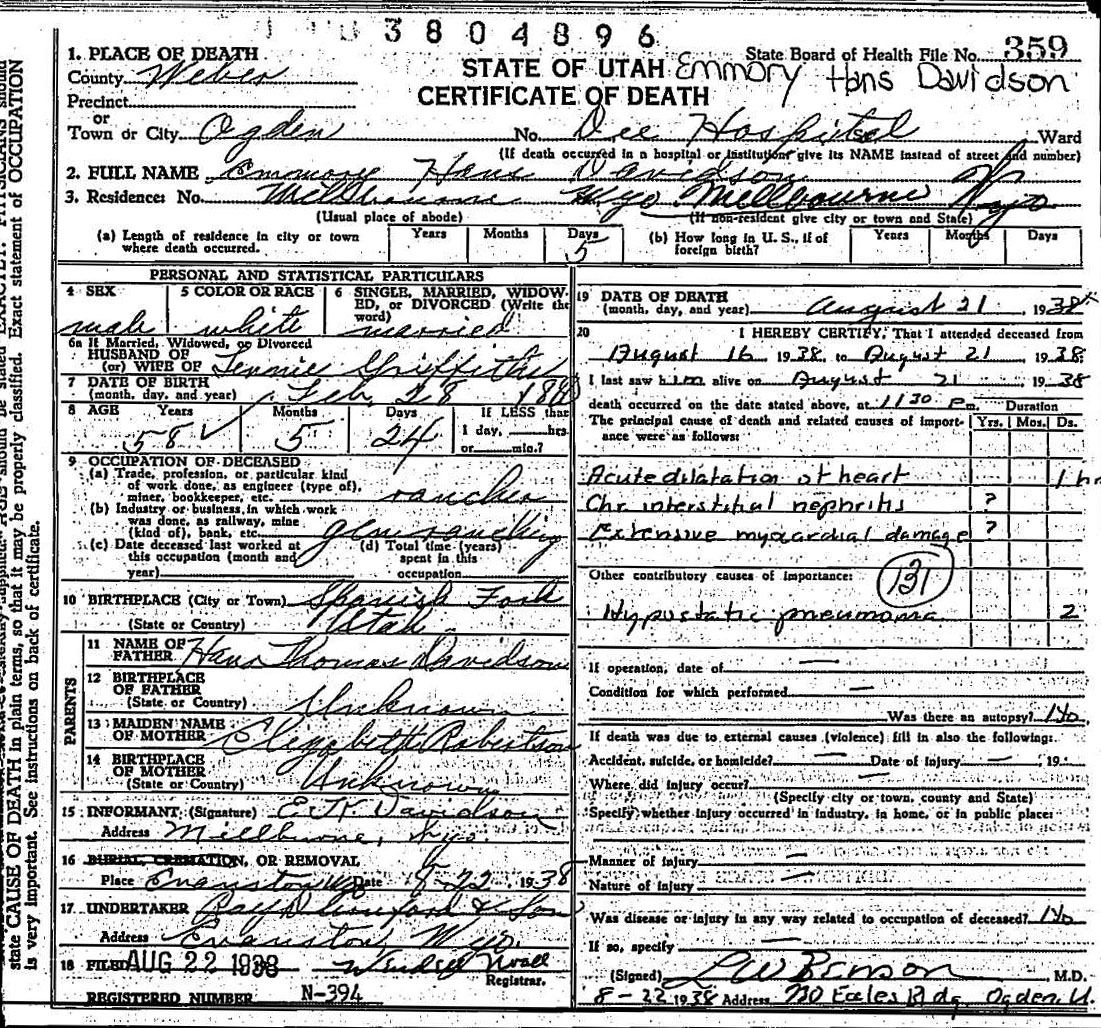 3804896
State Board of Health File No. 359
1. PLACE OF DEATH
STATE OF UTAH Emmory Hans Davidson
County Weber
CERTIFICATE OF DEATH
Precinct
or
Town or City Ogden No. Dee Hospital St. Ward
(If death occurred in a hospital or institution give its NAME instead of street and number)
2. FULL NAME Emmory Hans Davidson
3. Residence: No. Millburne Wyo Millbourne Wyo
(Usual place of abode) (If non-resident give city or town and State)
(a) Length of residence in city or town where death occurred. Years Months Days 5
(b) How long in U. S., if of foreign birth? Years Months Days
PERSONAL AND STATISTICAL PARTICULARS
4 SEX male
5 COLOR OR RACE white
6 SINGLE, MARRIED, WIDOWED, or DIVORCED (Write the word) married
6a If Married, Widowed, or Divorced
HUSBAND OF
(or) WIFE OF Jennie Griffiths
7 DATE OF BIRTH
(month, day, and year) Feb, 28 1880
8 AGE Years 58 Months 5 Days 24 If LESS than 1 day, hrs. or min.?
9 OCCUPATION OF DECEASED
(a) Trade, profession, or particular kind
of work done, as engineer (type of),
miner, bookkeeper, etc. rancher
(b) Industry or business, in which work
was done, as railway, mine
(kind of), bank, etc. gen ranching
(c) Date deceased last worked at
this occupation (month and
year)
(d) Total time (years)
spent in this
occupation
10 BIRTHPLACE (City or Town) Spanish Fork
(State or Country) Utah
PARENTS
11 NAME OF
FATHER Hans Thomas Davidson
12 BIRTHPLACE
OF FATHER
(State or Country) Unknown
13 MAIDEN NAME
OF MOTHER Elizabeth Robertson
14 BIRTHPLACE
OF MOTHER
(State or Country) Unknown
15 INFORMANT (Signature) Davidson
Address Millburne, Wyo.
16 BURIAL, CREMATION, OR REMOVAL
Place Evanston Wyo Date 8-22 1938
17 UNDERTAKER & Son
Address Evanston, Wyo.
18 FILED AUG 22 1938
Registrar.
REGISTERED NUMBER N-394
19 DATE OF DEATH
(month, day, and year) August 21 1938
20 I HEREBY CERTIFY, That I attended deceased from
August 16 1938 to August 21 1938
I last saw him alive on August 21 1938
death occurred on the date stated above, at 1130 P m. Duration
The principal cause of death and related causes of importance were as follows: Yrs. Mos. Ds.
Acute dilatation of heart 1 hr
Chr interstitial nephritis ?
Extensive myocardial damage ?
Other contributory causes of importance: 131
Hypostatic pneumonia 2
If operation, date of —
Condition for which performed —
Was there an autopsy? No
If death was due to external causes (violence) fill in also the following:
Accident, suicide, or homicide? — Date of Injury — 19
Where did injury occur? —
(Specify city or town, county and State)
Specify whether injury occurred in industry, in home, or in public place:
Manner of injury —
Nature of injury —
Was disease or injury in any way related to occupation of deceased? No
If so, specify —
(Signed) L W Benson M.D.
8-22 1938 Address 730 Eccles Bldg, Ogden, U.
state CAUSE OF DEATH in plain terms, so that it may be properly classified. Exact statement of OCCUPATION
is very important. See instructions on back of certificate.